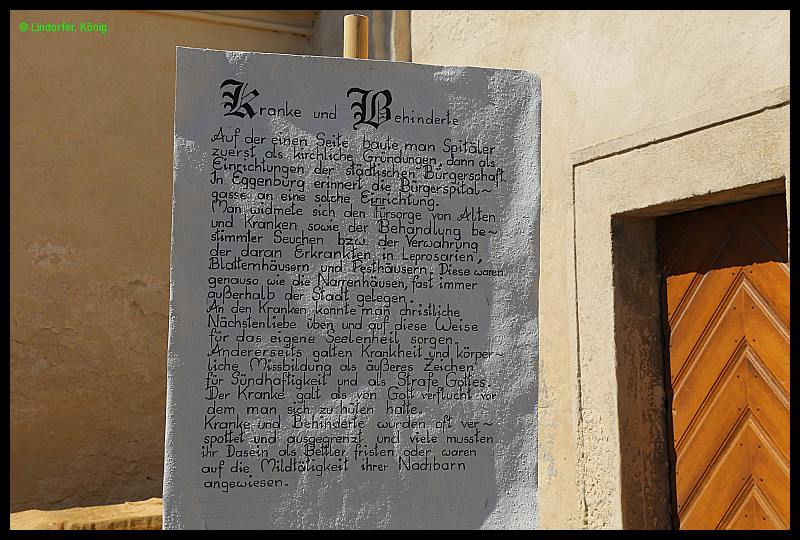 © Lindorfer, König
Kranke und Behinderte
Auf der einen Seite baute man Spitäler
zuerst als kirchliche Gründungen, dann als
Einrichtungen der städtischen Bürgerschaft
In Eggenburg erinnert die Bürgerspital~
gasse an eine solche Einrichtung.
Man widmete sich den Fürsorge von Alten
und Kranken sowie der Behandlung be~
stimmter Seuchen bzw. der Verwahrung
der daran Erkrankten in Leprosarien,
Blatternhäusern und Pesthäusern. Diese waren
genauso wie die Narrenhäuser, fast immer
außerhalb der Stadt gelegen.
An den Kranken konnte man christliche
Nächstenliebe üben und auf diese Weise
für das eigene Seelenheil sorgen.
Andererseits galten Krankheit und körper~
liche Missbildung als äußeres Zeichen
für Sündhaftigkeit und als Strafe Gottes.
Der Kranke galt als von Gott verflucht vor
dem man sich zu hüten hatte.
Kranke und Behinderte wurden oft ver~
spottet und ausgegrenzt und viele mussten
ihr Dasein als Bettler fristen oder waren
auf die Mildtätigkeit ihrer Nachbarn
angewiesen.